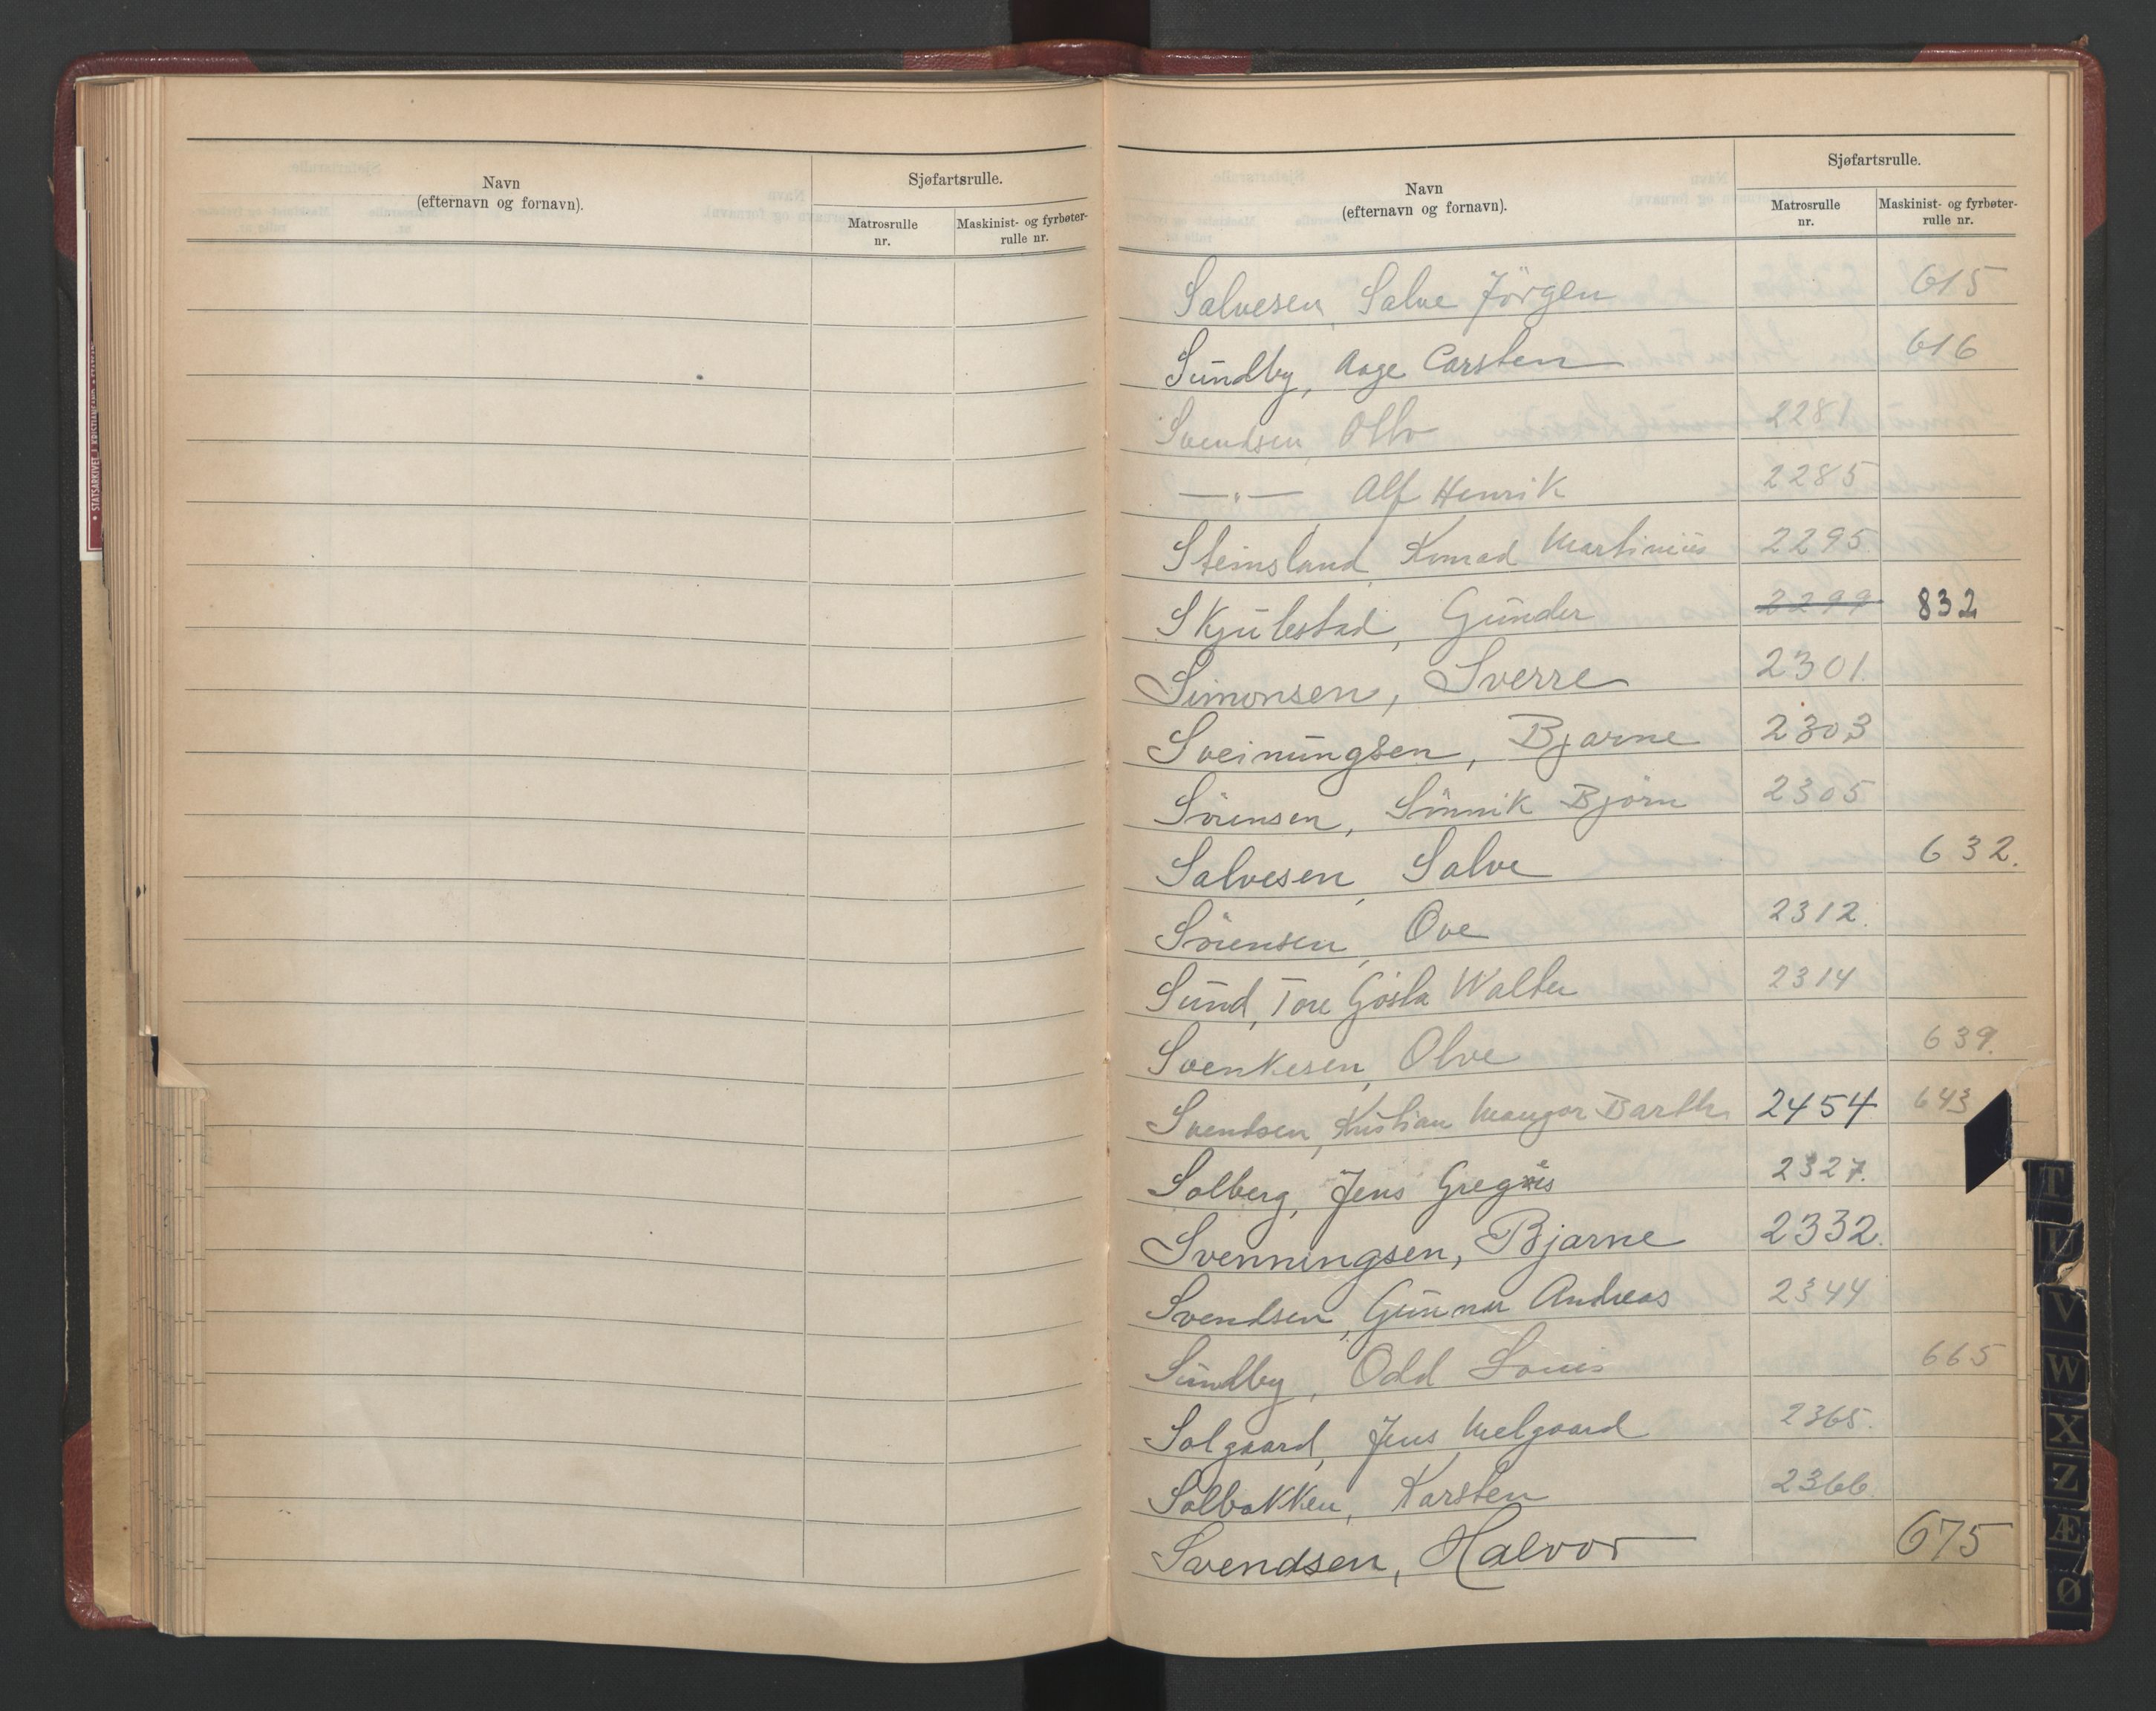 Navn
(efternavn og fornavn).
Sjøfartsrulle.
Matrosrulle
nr.
Maskinist- og fyrbøter-
rulle nr.
Navn
(efternavn og fornavn).
Sjøfartsrulle.
Matrosrulle
nr.
Maskinist- og fyrbøter-
rulle nr.
Salvesen, Salve Jörgen 615
Sundby, Aage Carsten 616
Svendsen, Otto 2281
—"— Alf Henrik 2285
Steinsland, Konrad Martinius 2295
Skjulestad, Gunder 2299 832
Simonsen, Sverre 2301.
Sveinungsen, Bjarne 2303
Sörensen, Sönnik Björn 2305
Salvesen, Salve 632.
Sörensen, Ove 2312.
Sund, Tore Gösta Walter 2314
Svenkesen, Olve 639.
Svendsen, Kristian Mangor Barth 2454 643
Solberg, Jens Gregers 2327.
Svenningsen, Bjarne 2332.
Svendsen, Gunnar Andreas 2344
Sundby, Odd Louis 665
Solgaard, Jens Melgaard 2365.
Solbakken, Karsten 2366
Svendsen, Halvor 675
T
U
V
W
X
Z
Æ
Ø